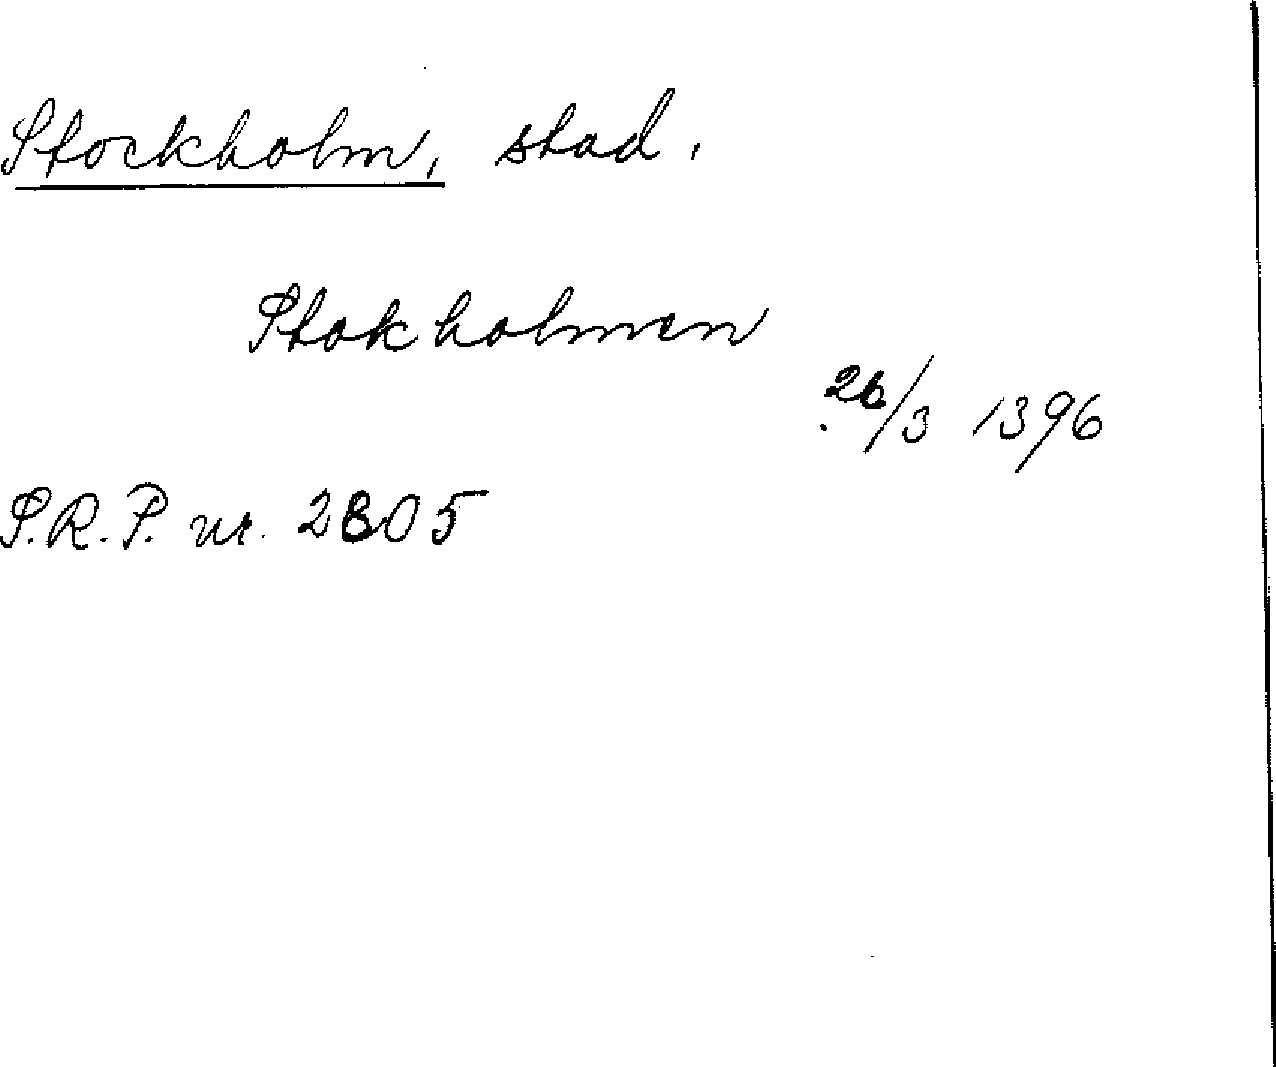 Stockholm, stad.
Stokholmen
26/3 1396
S.R.P. nr. 2805